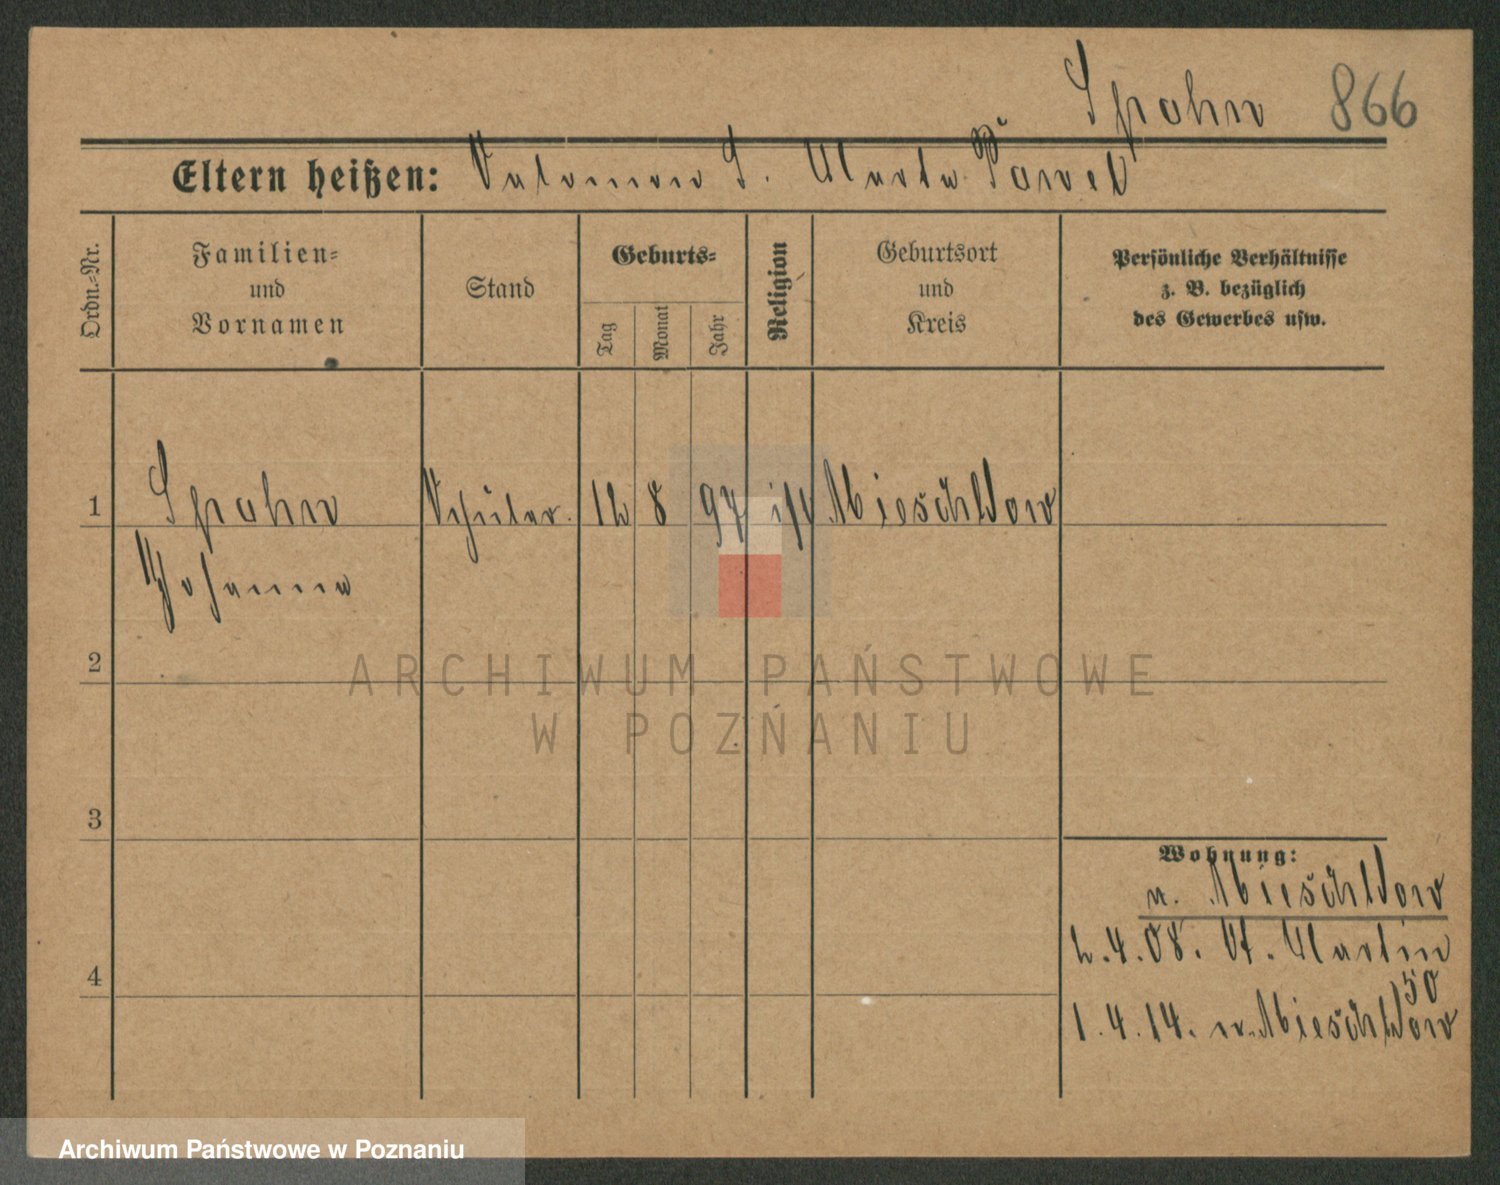 Spohn 866
Eltern heißen: Salomon S. Marta
Ordn.-Nr.
Familien-
und
Vornamen
Stand
Geburts-
Tag
Monat
Jahr
Religion
Geburtsort
und
Kreis
Persönliche Verhältnisse
z. B. bezüglich
des Gewerbes usw.
1
Spohn Schüler. 12 8 97 Mieschkow
Johanna
2
3
4
Wohnung:
v. Mieschkow
2.4.08. St. Martin
50
1.4.14. n. Mieschkow
ARCHIWUM PAŃSTWOWE
W POZNANIU
Archiwum Państwowe w Poznaniu